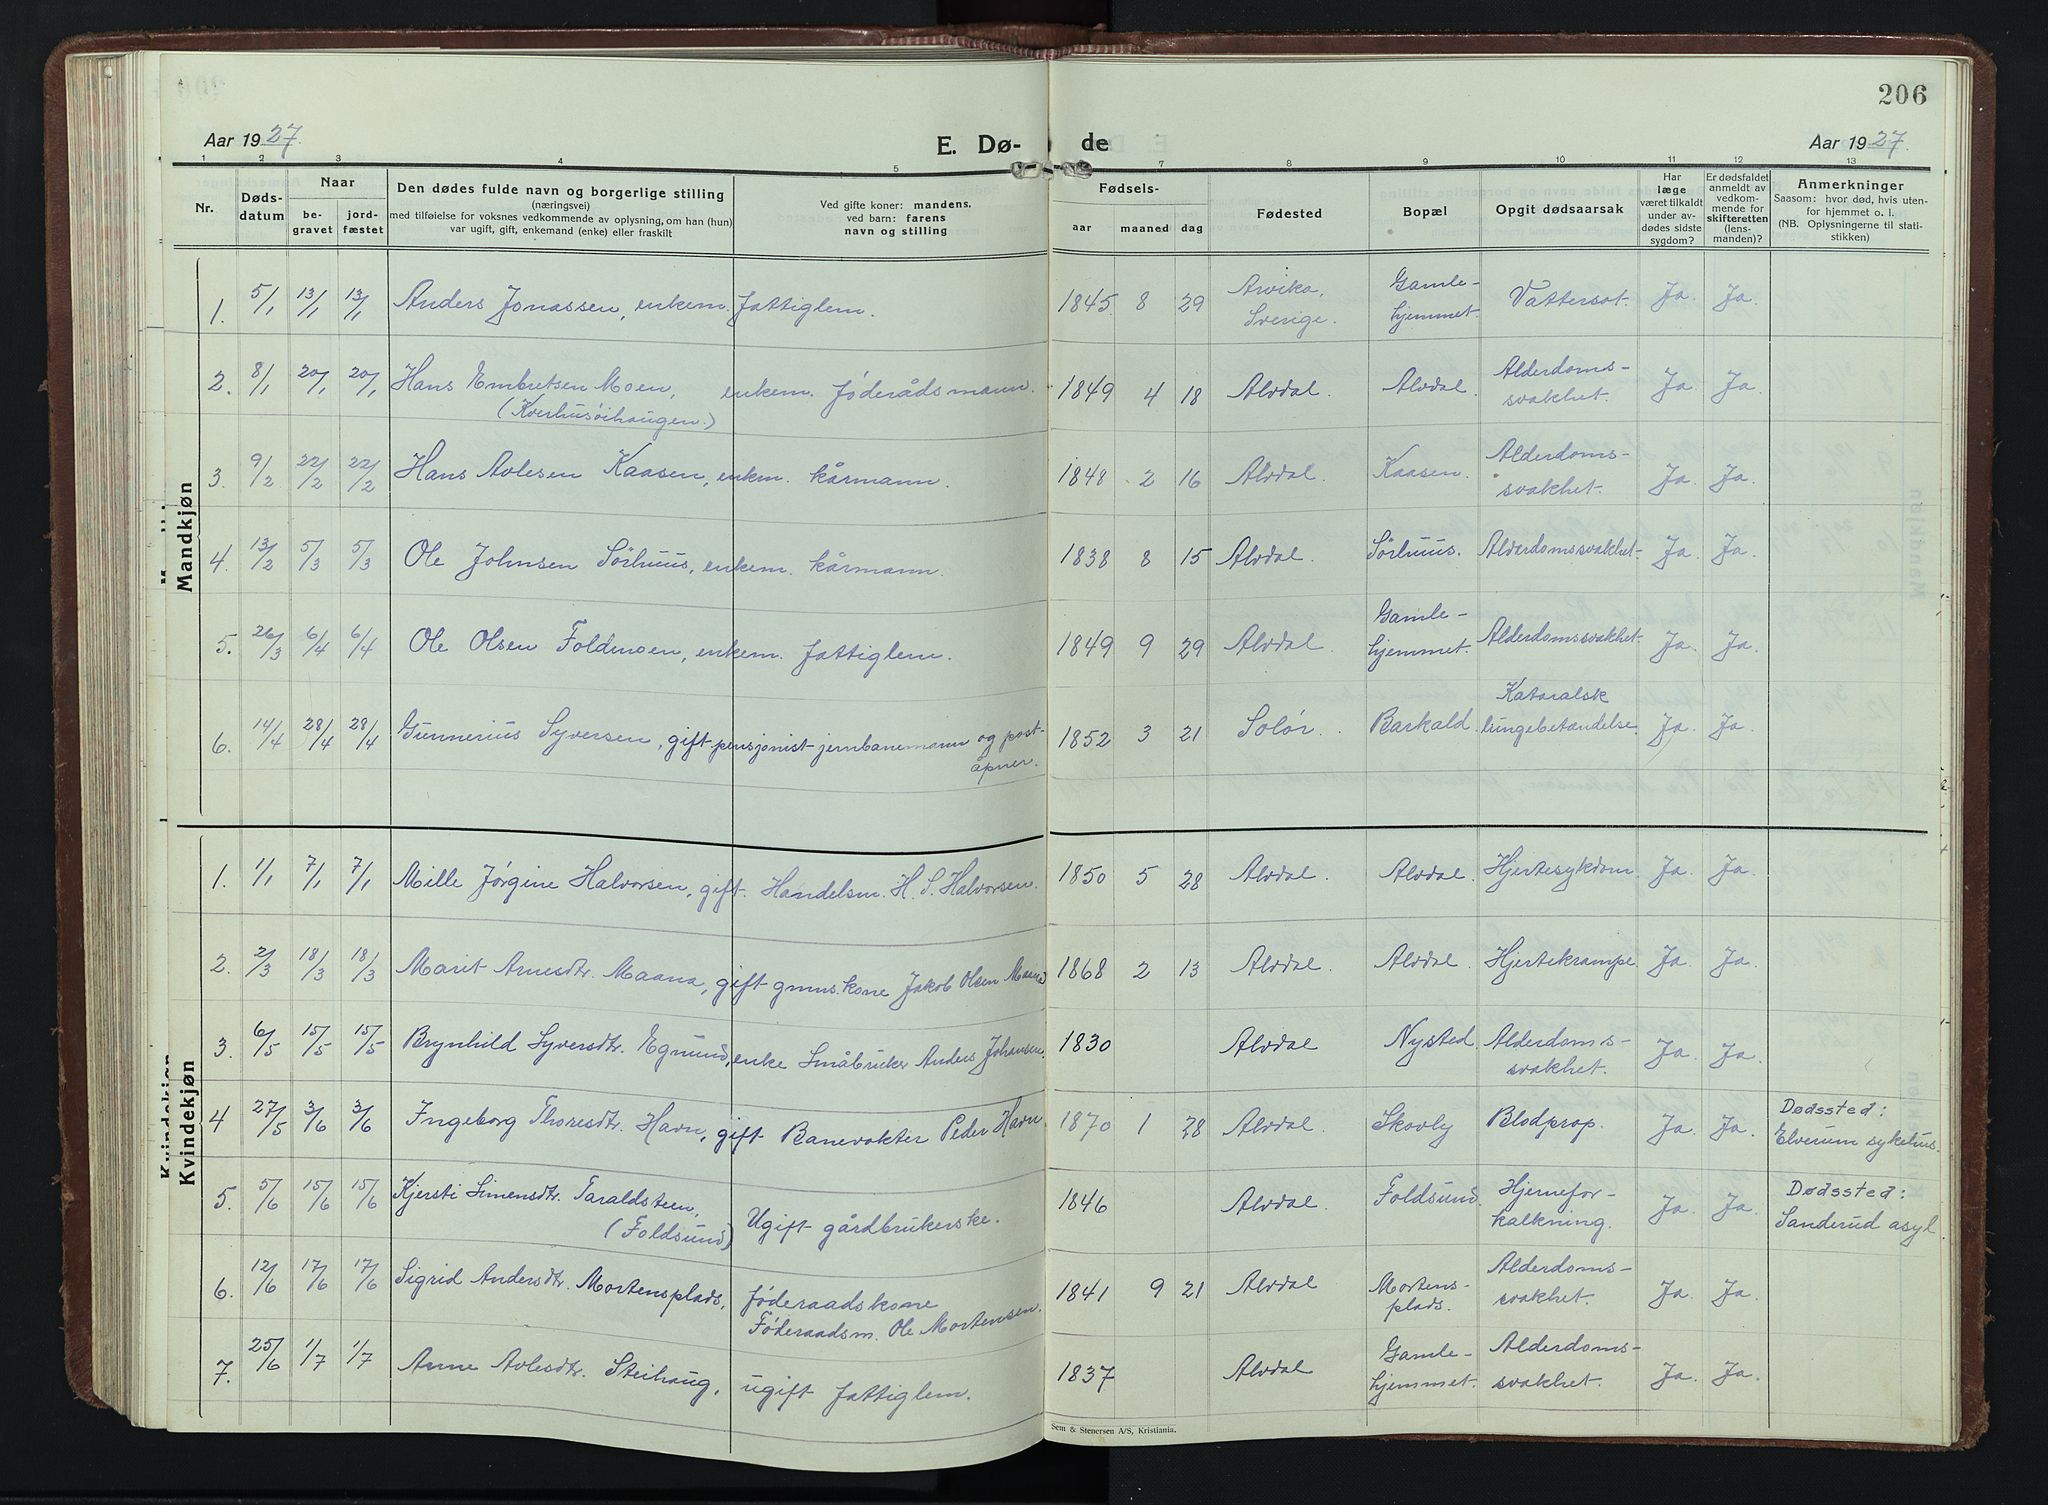 206
Aar 1927.
E. Dø-
de
Aar 1927.
1 2 3 4 5 7 8 9 10 11 12 13
Nr.
Døds-
datum
Naar
be-
gravet
jord-
fæstet
Den dødes fulde navn og borgerlige stilling
(næringsvei)
med tilføielse for voksnes vedkommende av oplysning, om han (hun)
var ugift, gift, enkemand (enke) eller fraskilt
Ved gifte koner: mandens,
ved barn: farens
navn og stilling
Fødsels-
aar maaned dag
Fødested
Bopæl
Opgit dødsaarsak
Har
læge
været tilkaldt
under av-
dødes sidste
sygdom?
Er dødsfaldet
anmeldt av
vedkom-
mende for
skifteretten
(lens-
manden)?
Anmerkninger
Saasom: hvor død, hvis uten-
for hjemmet o. l.
(NB. Oplysningerne til stati-
stikken)
Mandkjøn
1. 5/1 13/1 13/1 Anders Jonassen, enkem. fattiglem. 1845 8 29 Arvika, Sverige. Gamle-
hjemmet. Vattersot. Ja. Ja.
2. 8/1 20/1 20/1 Hans Embretsen Moen, enkem. føderådsmann. 1849 4 18 Alvdal. Alvdal. Alderdoms-
svakhet. Ja. Ja.
(Kverhusøihaugen.)
3. 9/2 22/2 22/2 Hans Avlesen Kaasen, enkm. kårmann. 1848 2 16 Alvdal. Kaasen. Alderdoms-
svakhet. Ja. Ja.
4. 13/2 5/3 5/3 Ole Johnsen Sørhuus, enkem. kårmann. 1838 8 15 Alvdal. Sørhuus. Alderdomssvakhet. Ja. Ja.
5. 26/3 6/4 6/4 Ole Olsen Foldmoen, enkem. fattiglem. 1849 9 29 Alvdal. Gamle-
hjemmet. Alderdomssvakhet. Ja. Ja.
6. 14/4 28/4 28/4 Gunnerius Syversen, gift pensjonist jernbanemann og post-
åpner. 1852 3 21 Solør. Barkald Kataralsk
lungebetændelse. Ja. Ja.
Kvindekjøn
1. 1/1 7/1 7/1 Mille Jørgine Halvorsen, gift. Handelsm. H. S. Halvorsen. 1850 5 28 Alvdal. Alvdal. Hjertesykdom. Ja. Ja.
2. 2/3 18/3 18/3 Marit Arnesdtr. Maana, gift gmus.kone Jakob Olsen Maana 1868 2 13 Alvdal. Alvdal. Hjertekrampe. Ja. Ja.
3. 6/5 15/5 15/5 Brynhild Syversdtr. Egnund, enke Småbruker Anders Johansen. 1830 Alvdal Nysted. Alderdoms-
svakhet. Ja. Ja.
4 27/5 3/6 3/6 Ingeborg Thoresdtr. Havn, gift Banevokter Peder Havn 1870 1 28 Alvdal. Skovly Blodprop. Ja. Ja. Dødssted:
Elverum sykehus.
5. 5/6 15/6 15/6 Kjersti Simensdtr. Taraldsteen,
(Foldsund) Ugift gårdbrukerske. 1846 Alvdal. Foldsund. Hjernefor-
kalkning. Ja. Ja. Dødssted:
Sanderud asyl.
6. 12/6 17/6 17/6 Sigrid Andersdtr. Mortensplads, føderaadskone
Føderaadsm. Ole Mortensen. 1841 9 21 Alvdal Mortens-
plads. Alderdoms-
svakhet. Ja. Ja.
7. 25/6 1/7 1/7 Anne Avlesdtr. Steihaug, ugift fattiglem. 1837 Alvdal Gamle-
hjemmet. Alderdoms-
svakhet. Ja. Ja.
Sem & Stenersen A/S, Kristiania.